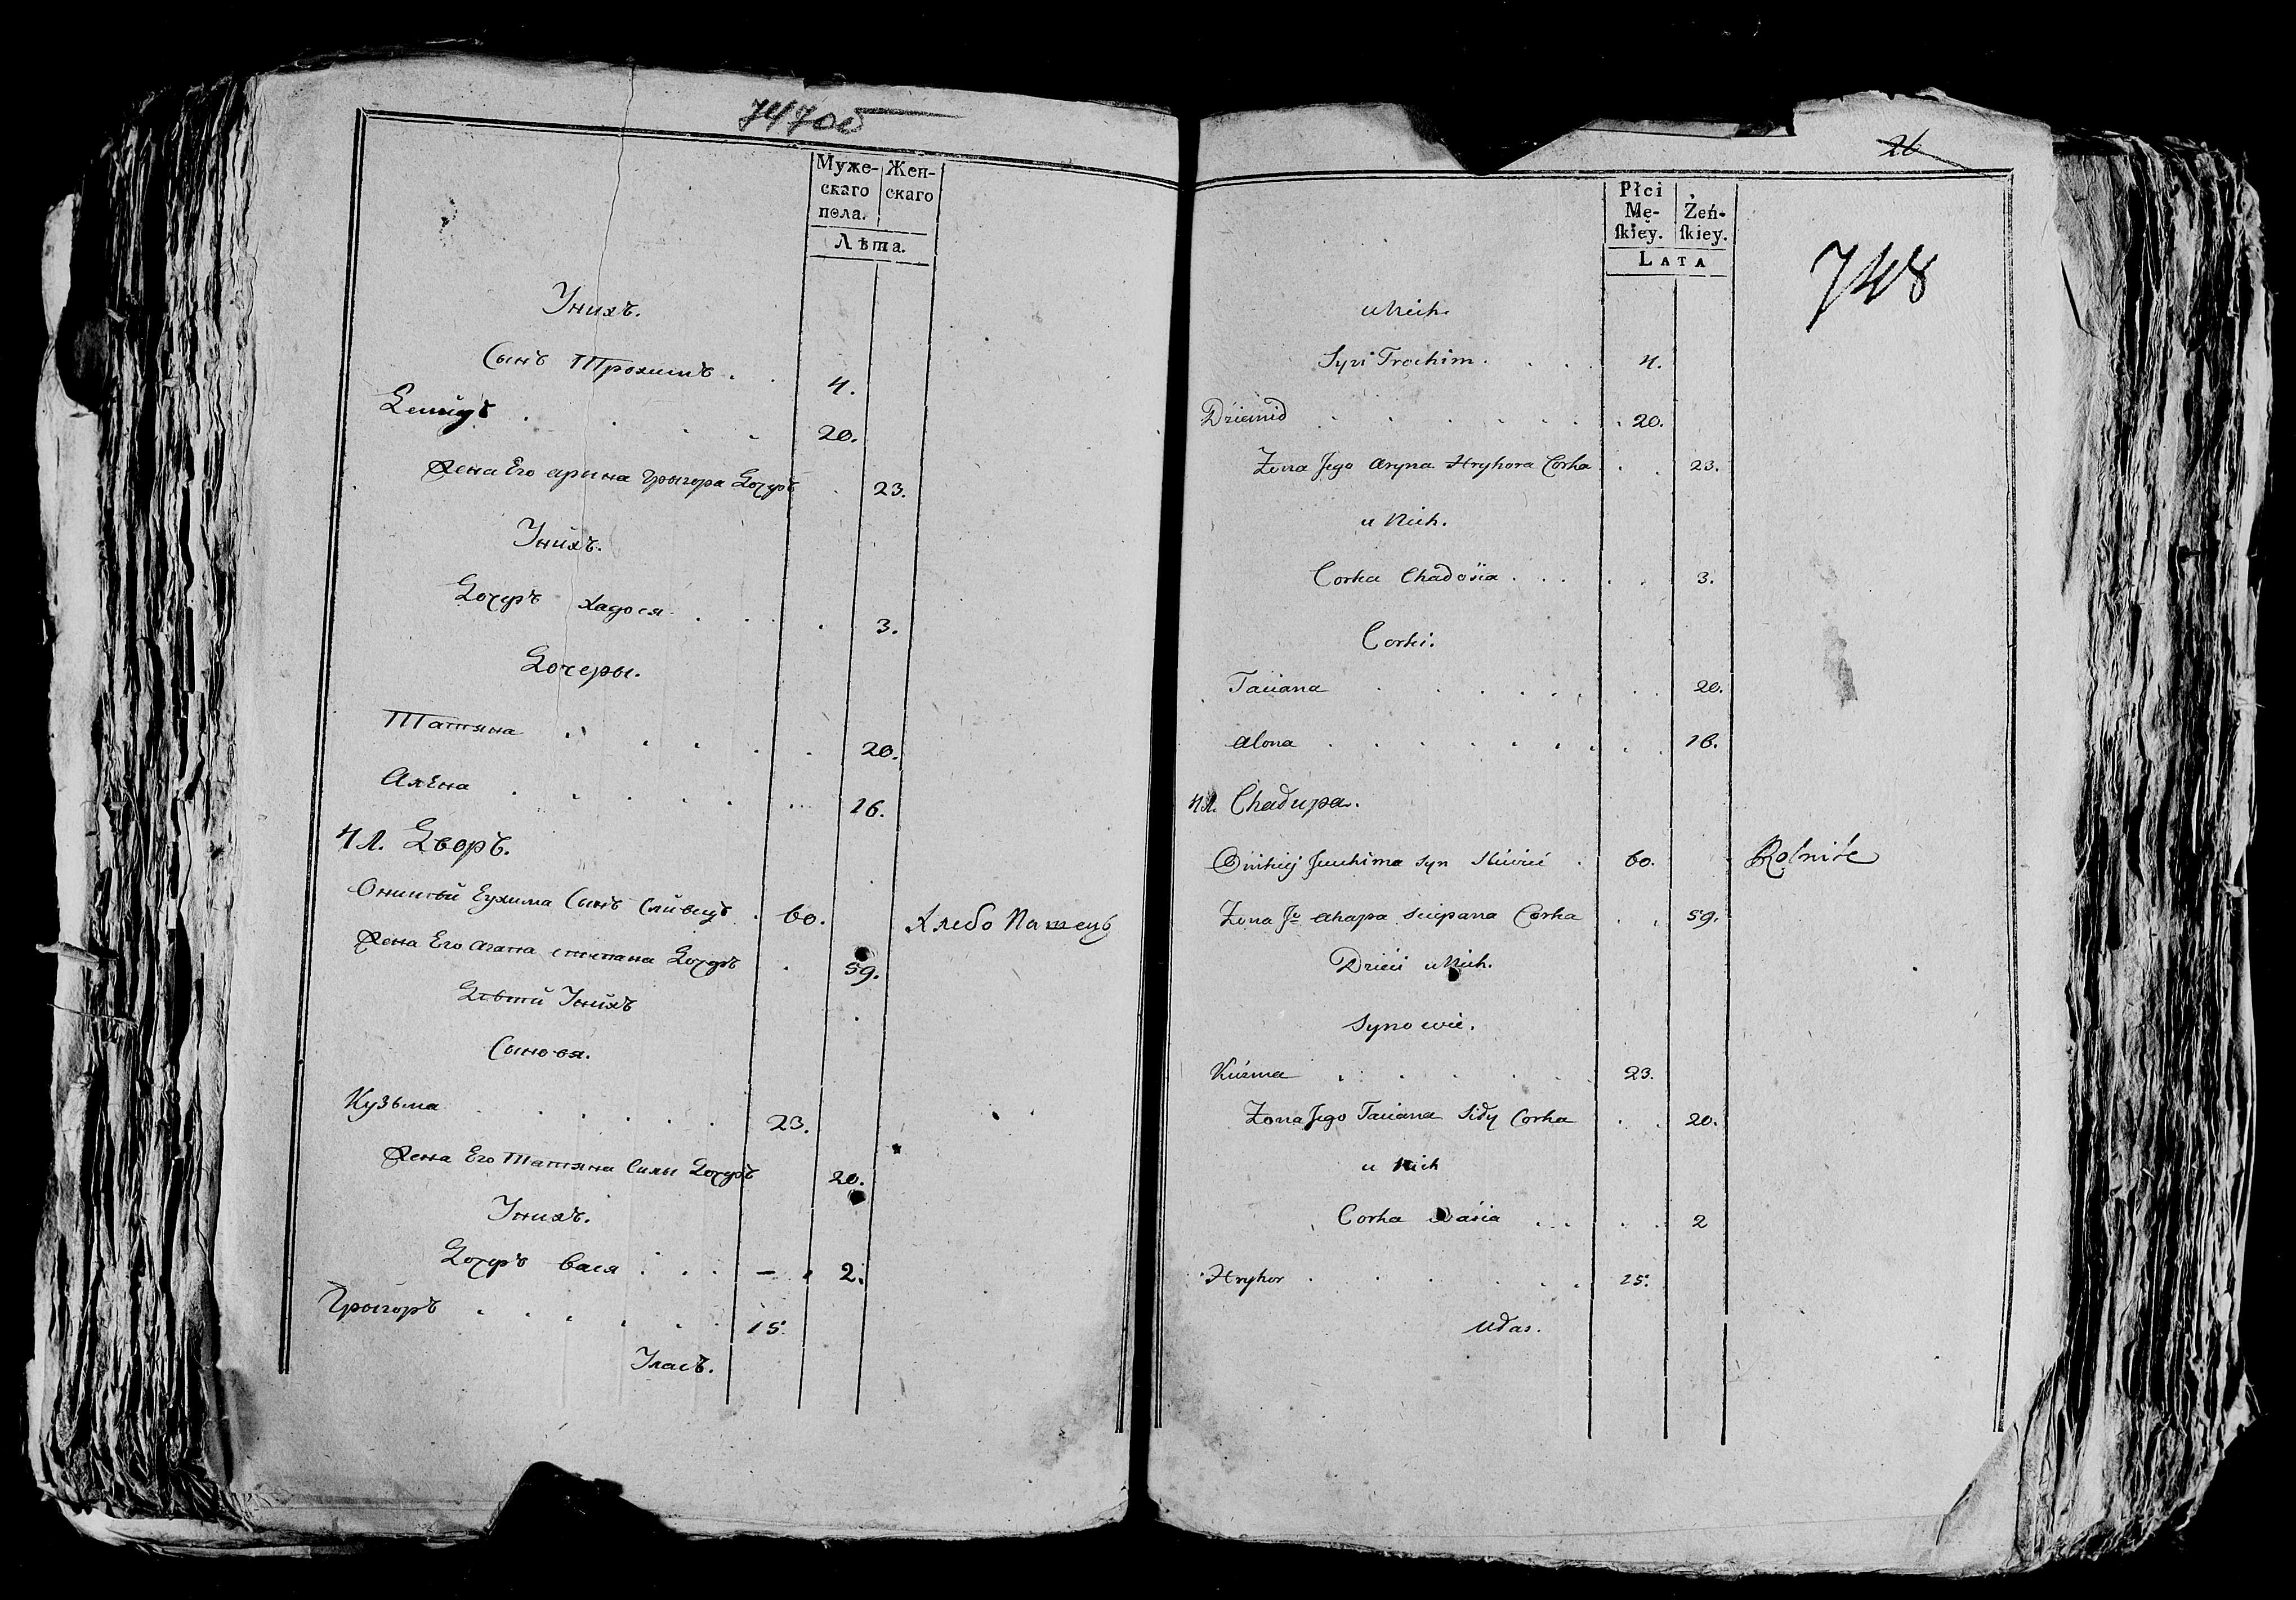 747 об
Муже-скаго пола. Жен-скаго
Лѣта.
У нихъ.
Сынъ Трохимъ . . 4.
Демидъ . . . . 20.
Жена Его арина Грыгора Дочеръ . 23.
У нихъ.
Дочеръ хадося . . . . 3.
Дочеры.
Татяна . . . . . . 20.
Алена . . . . . . 16.
4 Л. Дворъ.
Оникѣй Еухима Сынъ . 60. Хлебо Пашецъ
Жена Его агапа степана Дочеръ . . 59.
Дѣти У нихъ
Сыновя.
Кузьма . . . . . . 23.
Жена Его Татяна Дочеръ 20.
У нихъ.
Дочеръ вася . . . – . 2.
Грыгоръ . . . . . . 15.
26
748
Płci Mę-ſkiey. Żeń-ſkiey.
LATA
u Nich.
Syn Trochim . . . . 4.
Dziemid . . . . . . 20.
Zona Jego Aryna Hryhora Corka . . 23.
u Nich.
Corka Chadosia . . . . . 3.
Corki.
Taciana . . . . . . . . 20.
Alona . . . . . . . . . 16.
4 Л. Chadupa.
Onikiej Jeuchima Syn . 60. Rolnik
Zona Jo Ahapa Sciepana Corka . . 59.
Dzieci u Nich.
Synowie.
Kuzma . . . . . 23.
Zona Jego Taciana Corka . . 20.
u Nich
Corka Wasia . . . . . 2
Hryhor . . . . . . 15.